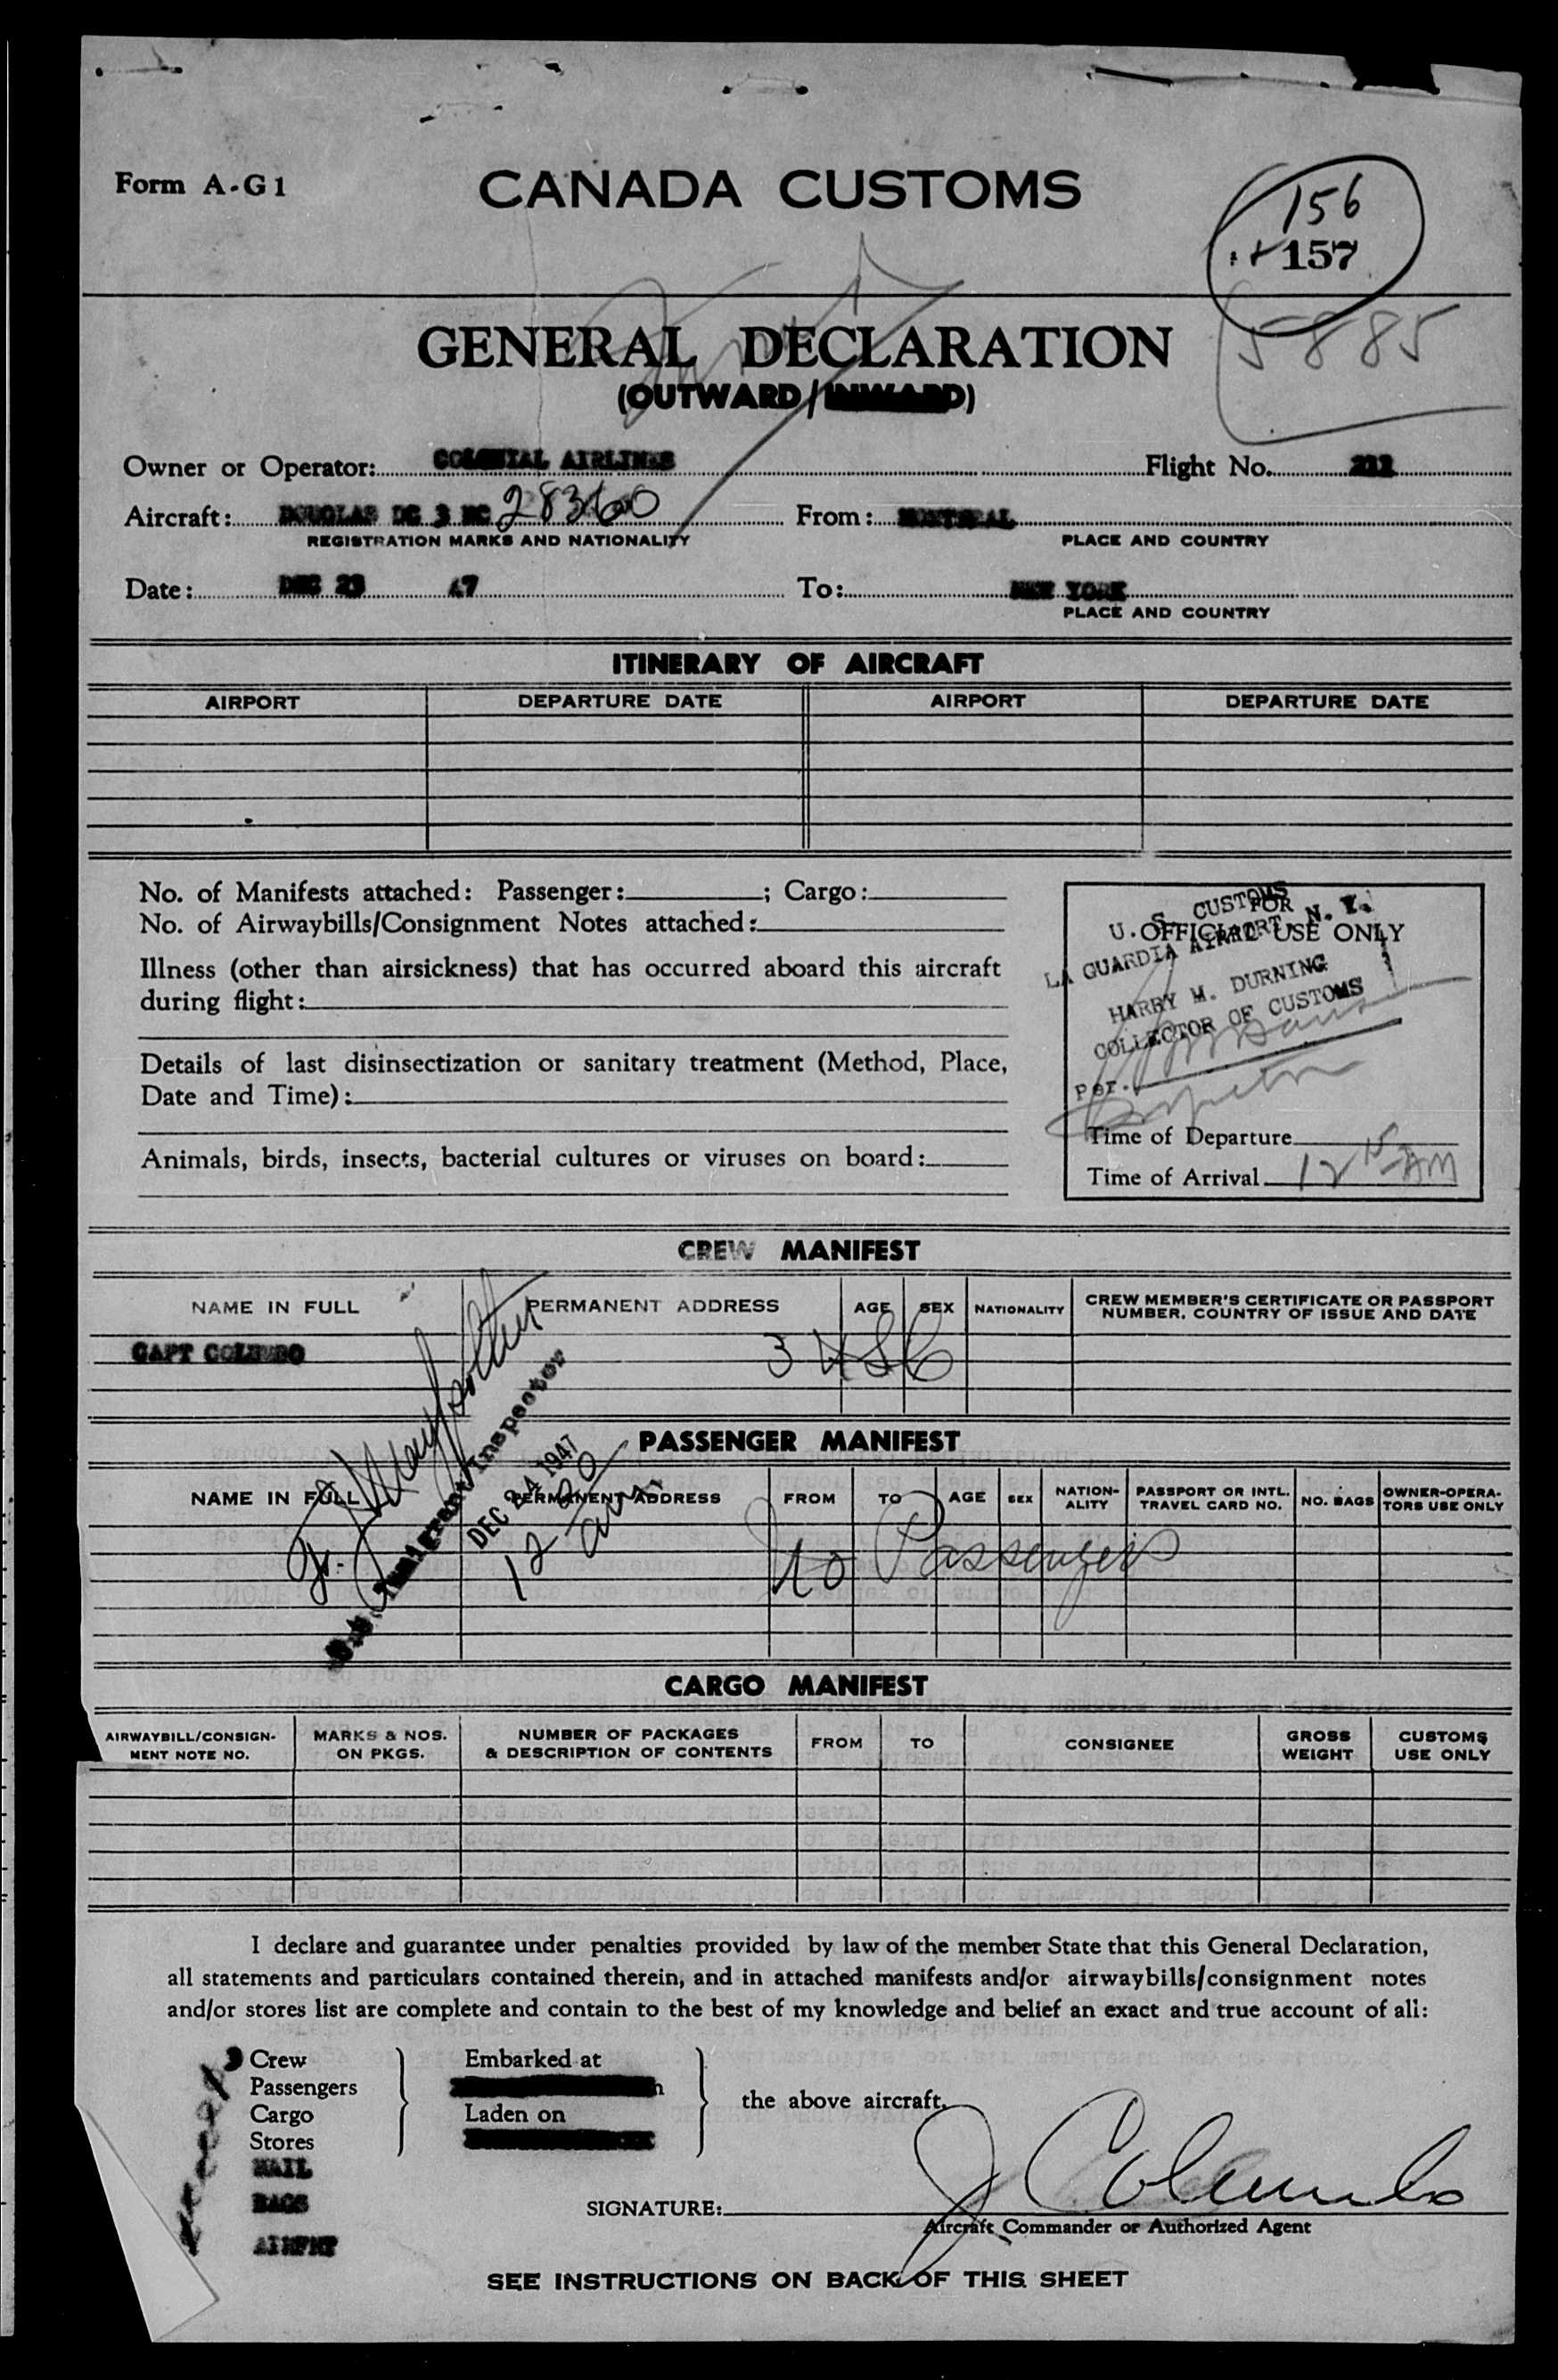 Form A-G1
CANADA CUSTOMS
156
157
GENERAL DECLARATION
5885
(OUTWARD/INWARD)
Owner or Operator: COLONIAL AIRLINES Flight No. 212
Aircraft: DOUGLAS DC 3 NC 28360 From: MONTREAL
REGISTRATION MARKS AND NATIONALITY PLACE AND COUNTRY
Date: DEC 23 47 To: NEW YORK
PLACE AND COUNTRY
ITINERARY OF AIRCRAFT
AIRPORT DEPARTURE DATE AIRPORT DEPARTURE DATE
No. of Manifests attached: Passenger: ; Cargo:
No. of Airwaybills/Consignment Notes attached:
Illness (other than airsickness) that has occurred aboard this aircraft
during flight:
Details of last disinsectization or sanitary treatment (Method, Place,
Date and Time):
Animals, birds, insects, bacterial cultures or viruses on board:
FOR
OFFICIAL USE ONLY
U. S. CUSTOMS
LA GUARDIA AIRPORT, N. Y.
HARRY M. DURNING
COLLECTOR OF CUSTOMS
Per.
Time of Departure
Time of Arrival 12 15 AM
CREW MANIFEST
NAME IN FULL PERMANENT ADDRESS AGE SEX NATIONALITY CREW MEMBER'S CERTIFICATE OR PASSPORT
NUMBER, COUNTRY OF ISSUE AND DATE
CAPT COLUMBO 3 USC
PASSENGER MANIFEST
NAME IN FULL PERMANENT ADDRESS FROM TO AGE SEX NATION-
ALITY PASSPORT OR INTL.
TRAVEL CARD NO. NO. BAGS OWNER-OPERA-
TORS USE ONLY
U.S. Immigrant Inspector
DEC 24 1947
12 20 am
10 Passengers
CARGO MANIFEST
AIRWAYBILL/CONSIGN-
MENT NOTE NO. MARKS & NOS.
ON PKGS. NUMBER OF PACKAGES
& DESCRIPTION OF CONTENTS FROM TO CONSIGNEE GROSS
WEIGHT CUSTOMS
USE ONLY
I declare and guarantee under penalties provided by law of the member State that this General Declaration,
all statements and particulars contained therein, and in attached manifests and/or airwaybills/consignment notes
and/or stores list are complete and contain to the best of my knowledge and belief an exact and true account of all:
Crew Embarked at
Passengers
the above aircraft.
Cargo Laden on
Stores
MAIL
BAGS
AIRFRT
SIGNATURE: J Columbo
Aircraft Commander or Authorized Agent
SEE INSTRUCTIONS ON BACK OF THIS SHEET